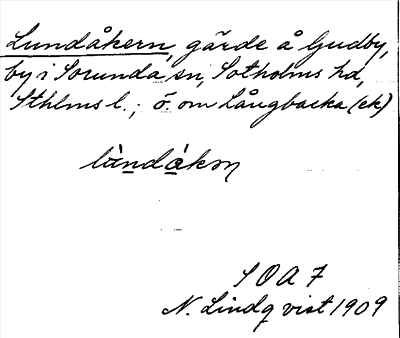 Lundåkern, gärde å Gudby,
by i Sorunda sn, Sotholms hd,
Sthlms l.; ö. om Långbacka (ek)
lùndákən
SOA 7
N. Lindqvist 1909